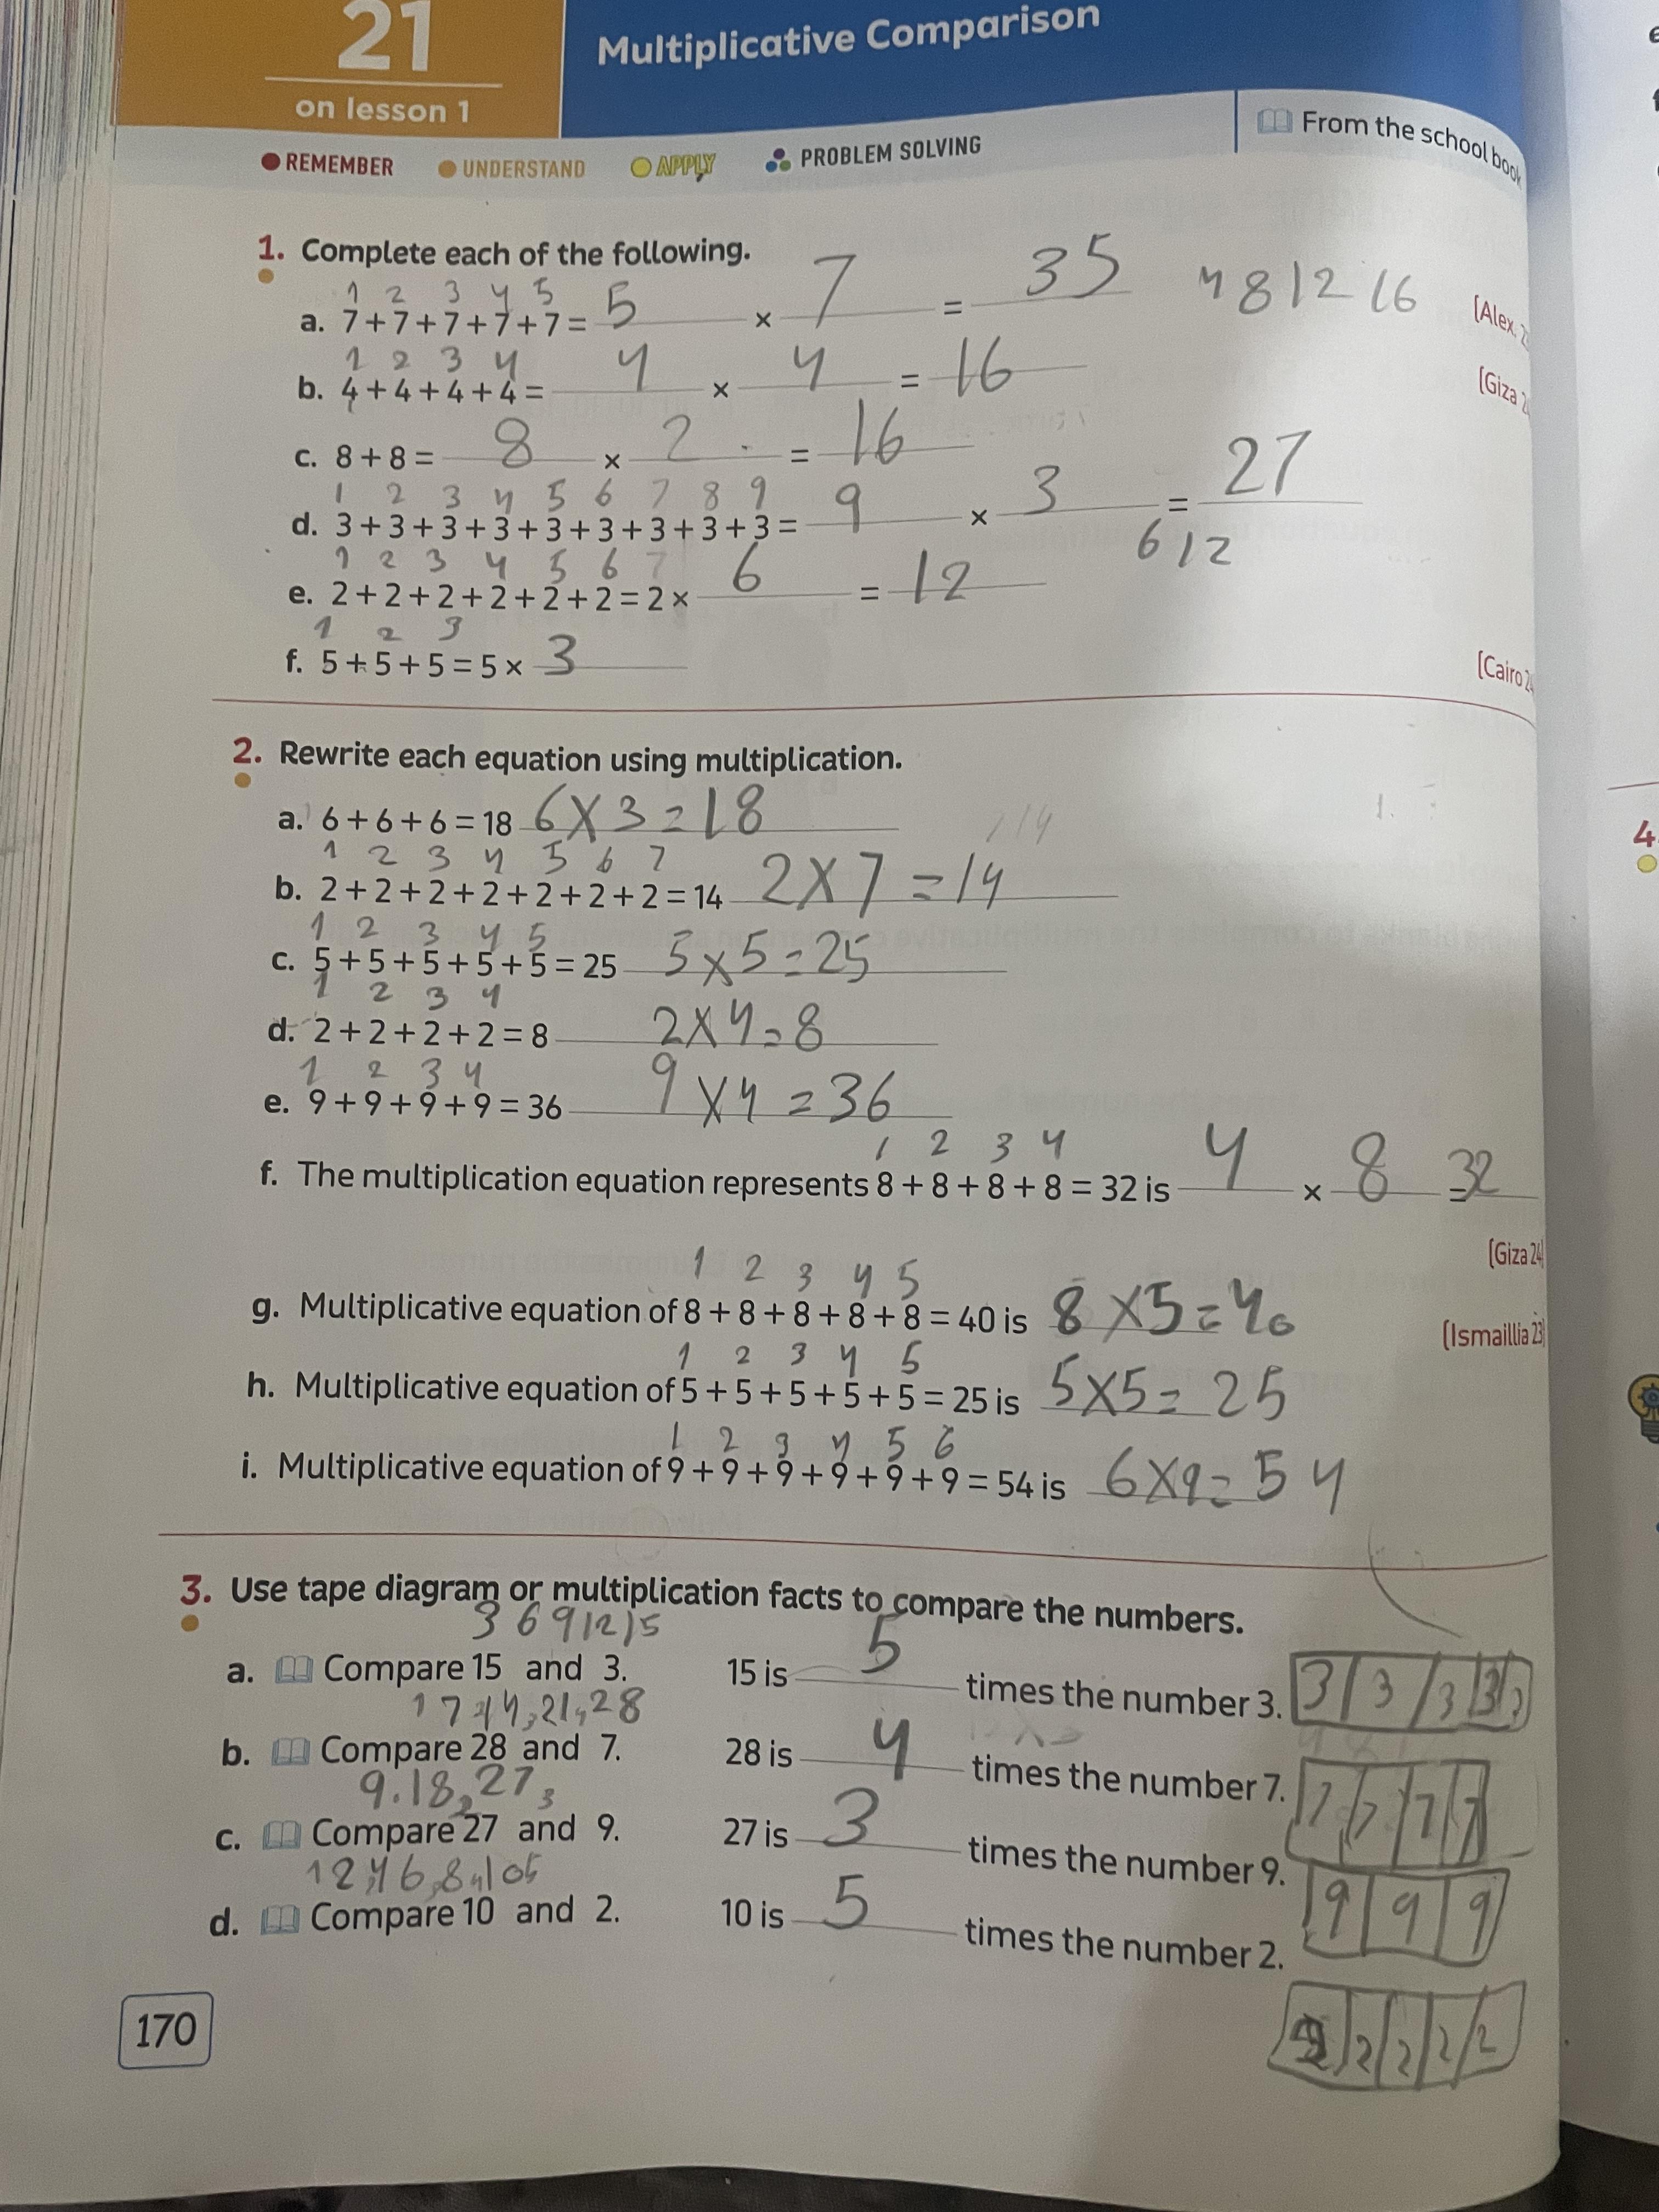 21
on lesson 1
Multiplicative Comparison
From the school book
REMEMBER UNDERSTAND APPLY PROBLEM SOLVING
1. Complete each of the following.
1 2 3 4 5
a. 7+7+7+7+7= 5 × 7 = 35 4 8 12 16 [Alex.
1 2 3 4
b. 4+4+4+4= 4 × 4 = 16 [Giza
c. 8+8= 8 × 2 = 16
1 2 3 4 5 6 7 8 9
d. 3+3+3+3+3+3+3+3+3= 9 × 3 = 27
1 2 3 4 5 6 7 6 12
e. 2+2+2+2+2+2=2× 6 = 12
1 2 3
f. 5+5+5=5× 3 [Cairo
2. Rewrite each equation using multiplication.
a. 6+6+6=18 6X3=18
1 2 3 4 5 6 7
b. 2+2+2+2+2+2+2=14 2X7=14
1 2 3 4 5
c. 5+5+5+5+5=25 5x5=25
1 2 3 4
d. 2+2+2+2=8 2X4=8
1 2 3 4
e. 9+9+9+9=36 9X4=36
1 2 3 4
f. The multiplication equation represents 8+8+8+8=32 is 4 × 8 =32
[Giza 24]
1 2 3 4 5
g. Multiplicative equation of 8+8+8+8+8=40 is 8X5=40 [Ismaillia 23]
1 2 3 4 5
h. Multiplicative equation of 5+5+5+5+5=25 is 5X5=25
1 2 3 4 5 6
i. Multiplicative equation of 9+9+9+9+9+9=54 is 6X9=54
3. Use tape diagram or multiplication facts to compare the numbers.
3 6 9 12 15
a. Compare 15 and 3. 15 is 5 times the number 3. 3 3 3 3 3
1 7 14, 21, 28
b. Compare 28 and 7. 28 is 4 times the number 7. 7 7 7 7
9. 18, 27,
c. Compare 27 and 9. 27 is 3 times the number 9. 9 9 9
d. Compare 10 and 2. 10 is 5 times the number 2. 2 2 2 2 2
170
4